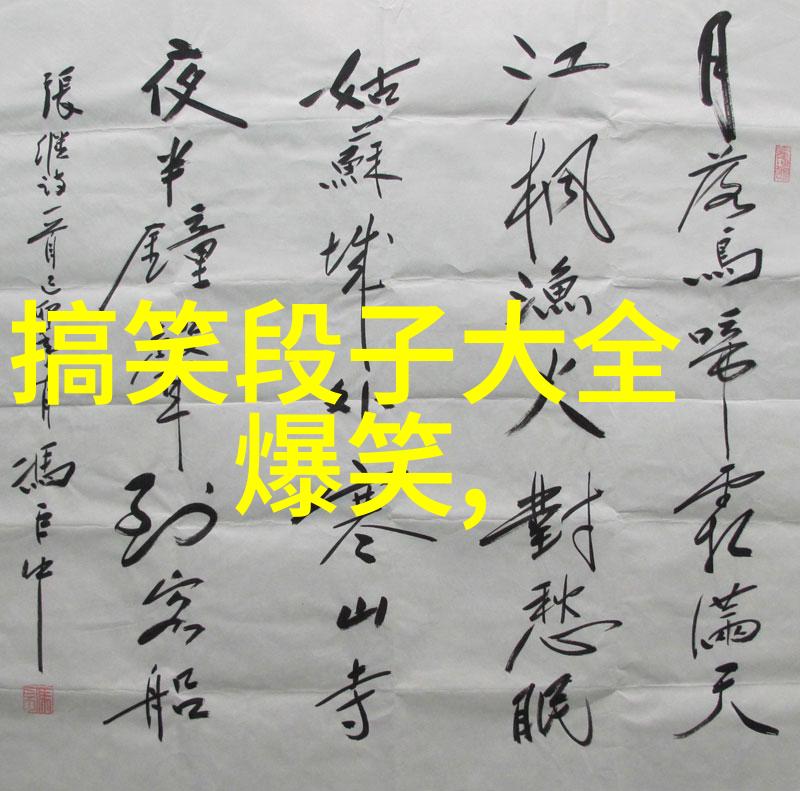 搞笑段子大全
爆笑,
月落烏啼霜滿天
江枫漁火對愁眠
姑蘇城外寒山寺
夜半鐘聲到客船
張继诗一首己卯月馮臣中